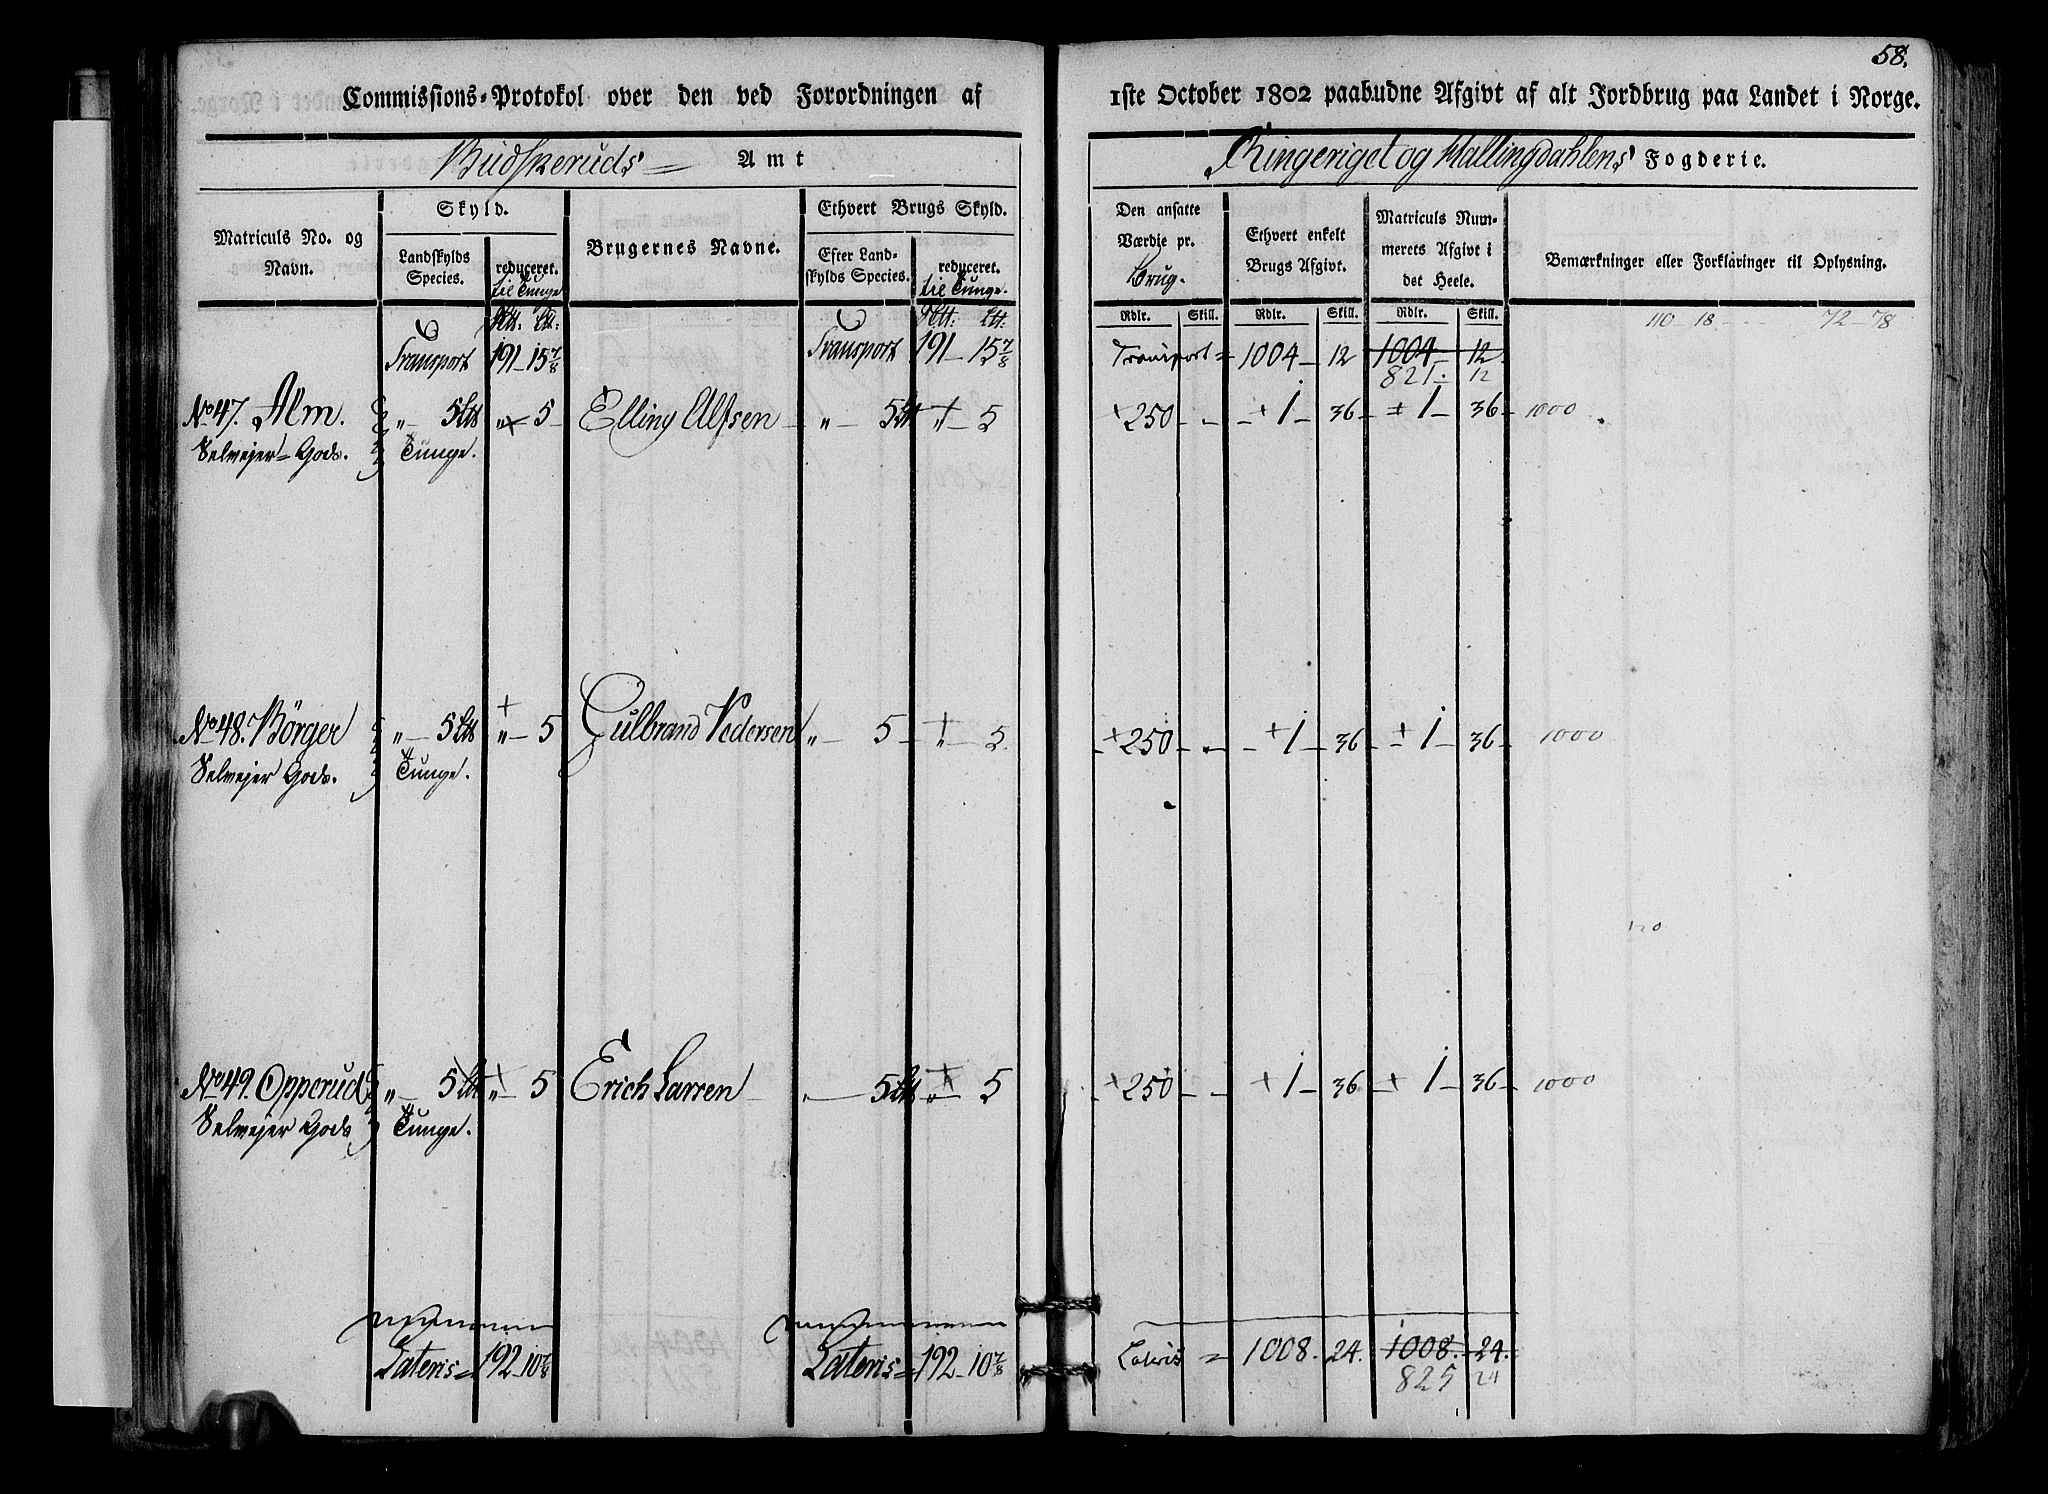 58.
Commissions-Protokol over den ved Forordningen af 1ste October 1802 paabudne Afgivt af alt Jordbrug paa Landet i Norge.
Budskeruds Amt
Ringeriget og Hallingdahlens Fogderie.
Matriculs No. og Navn.
Skyld.
Landskylds Species.
reduceret. til Tunge
Brugernes Navne.
Ethvert Brugs Skyld.
Efter Landskylds Species.
reduceret. til Tunge.
Den ansatte Værdie pr. Brug.
Ethvert enkelt Brugs Afgivt.
Matriculs Nummerets Afgivt i det Heele.
Bemærkninger eller Forklaringer til Oplysning.
Rdlr. Skill. Rdlr. Skill. Rdlr. Skill.
110 - 18 - - - 72 - 78
Transport 191 - 15 7/8 Transport 191 - 15 7/8 Transport = 1004 - 12 1004 - 12
821 - 12
No 47. Alm. „ - 5 „ - 5 - Elling Alfsen - „ - 5 „ - 5 + 250 - - + 1 - 36 - + 1 - 36 - 1000
Selvejer-Gods. Tunge.
No 48. Börger „ - 5 „ - 5 Gulbrand Pedersen „ - 5 - „ - 5 + 250 - „ - + 1 - 36 - + 1 - 36 - 1000
Selvejer Gods. Tunge.
120
No 49. Opperud „ - 5 „ - 5 Erich Larsen - „ - 5 „ - 5 + 250 - - + 1 - 36 + 1 - 36 - 1000
Selvejer Gods Tunge.
Lateris = 192 - 10 7/8 Lateris = 192 - 10 7/8 Lateris = 1008. 24. 1008. 24.
825 24